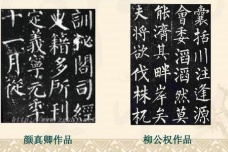 訓秘閣司經
史籍多所刊
定義寧元年
十一月
囊括川注逢源
會委滔滔然莫
能濟其畔岸矣
夫將欲伐株杌
颜真卿作品
柳公权作品